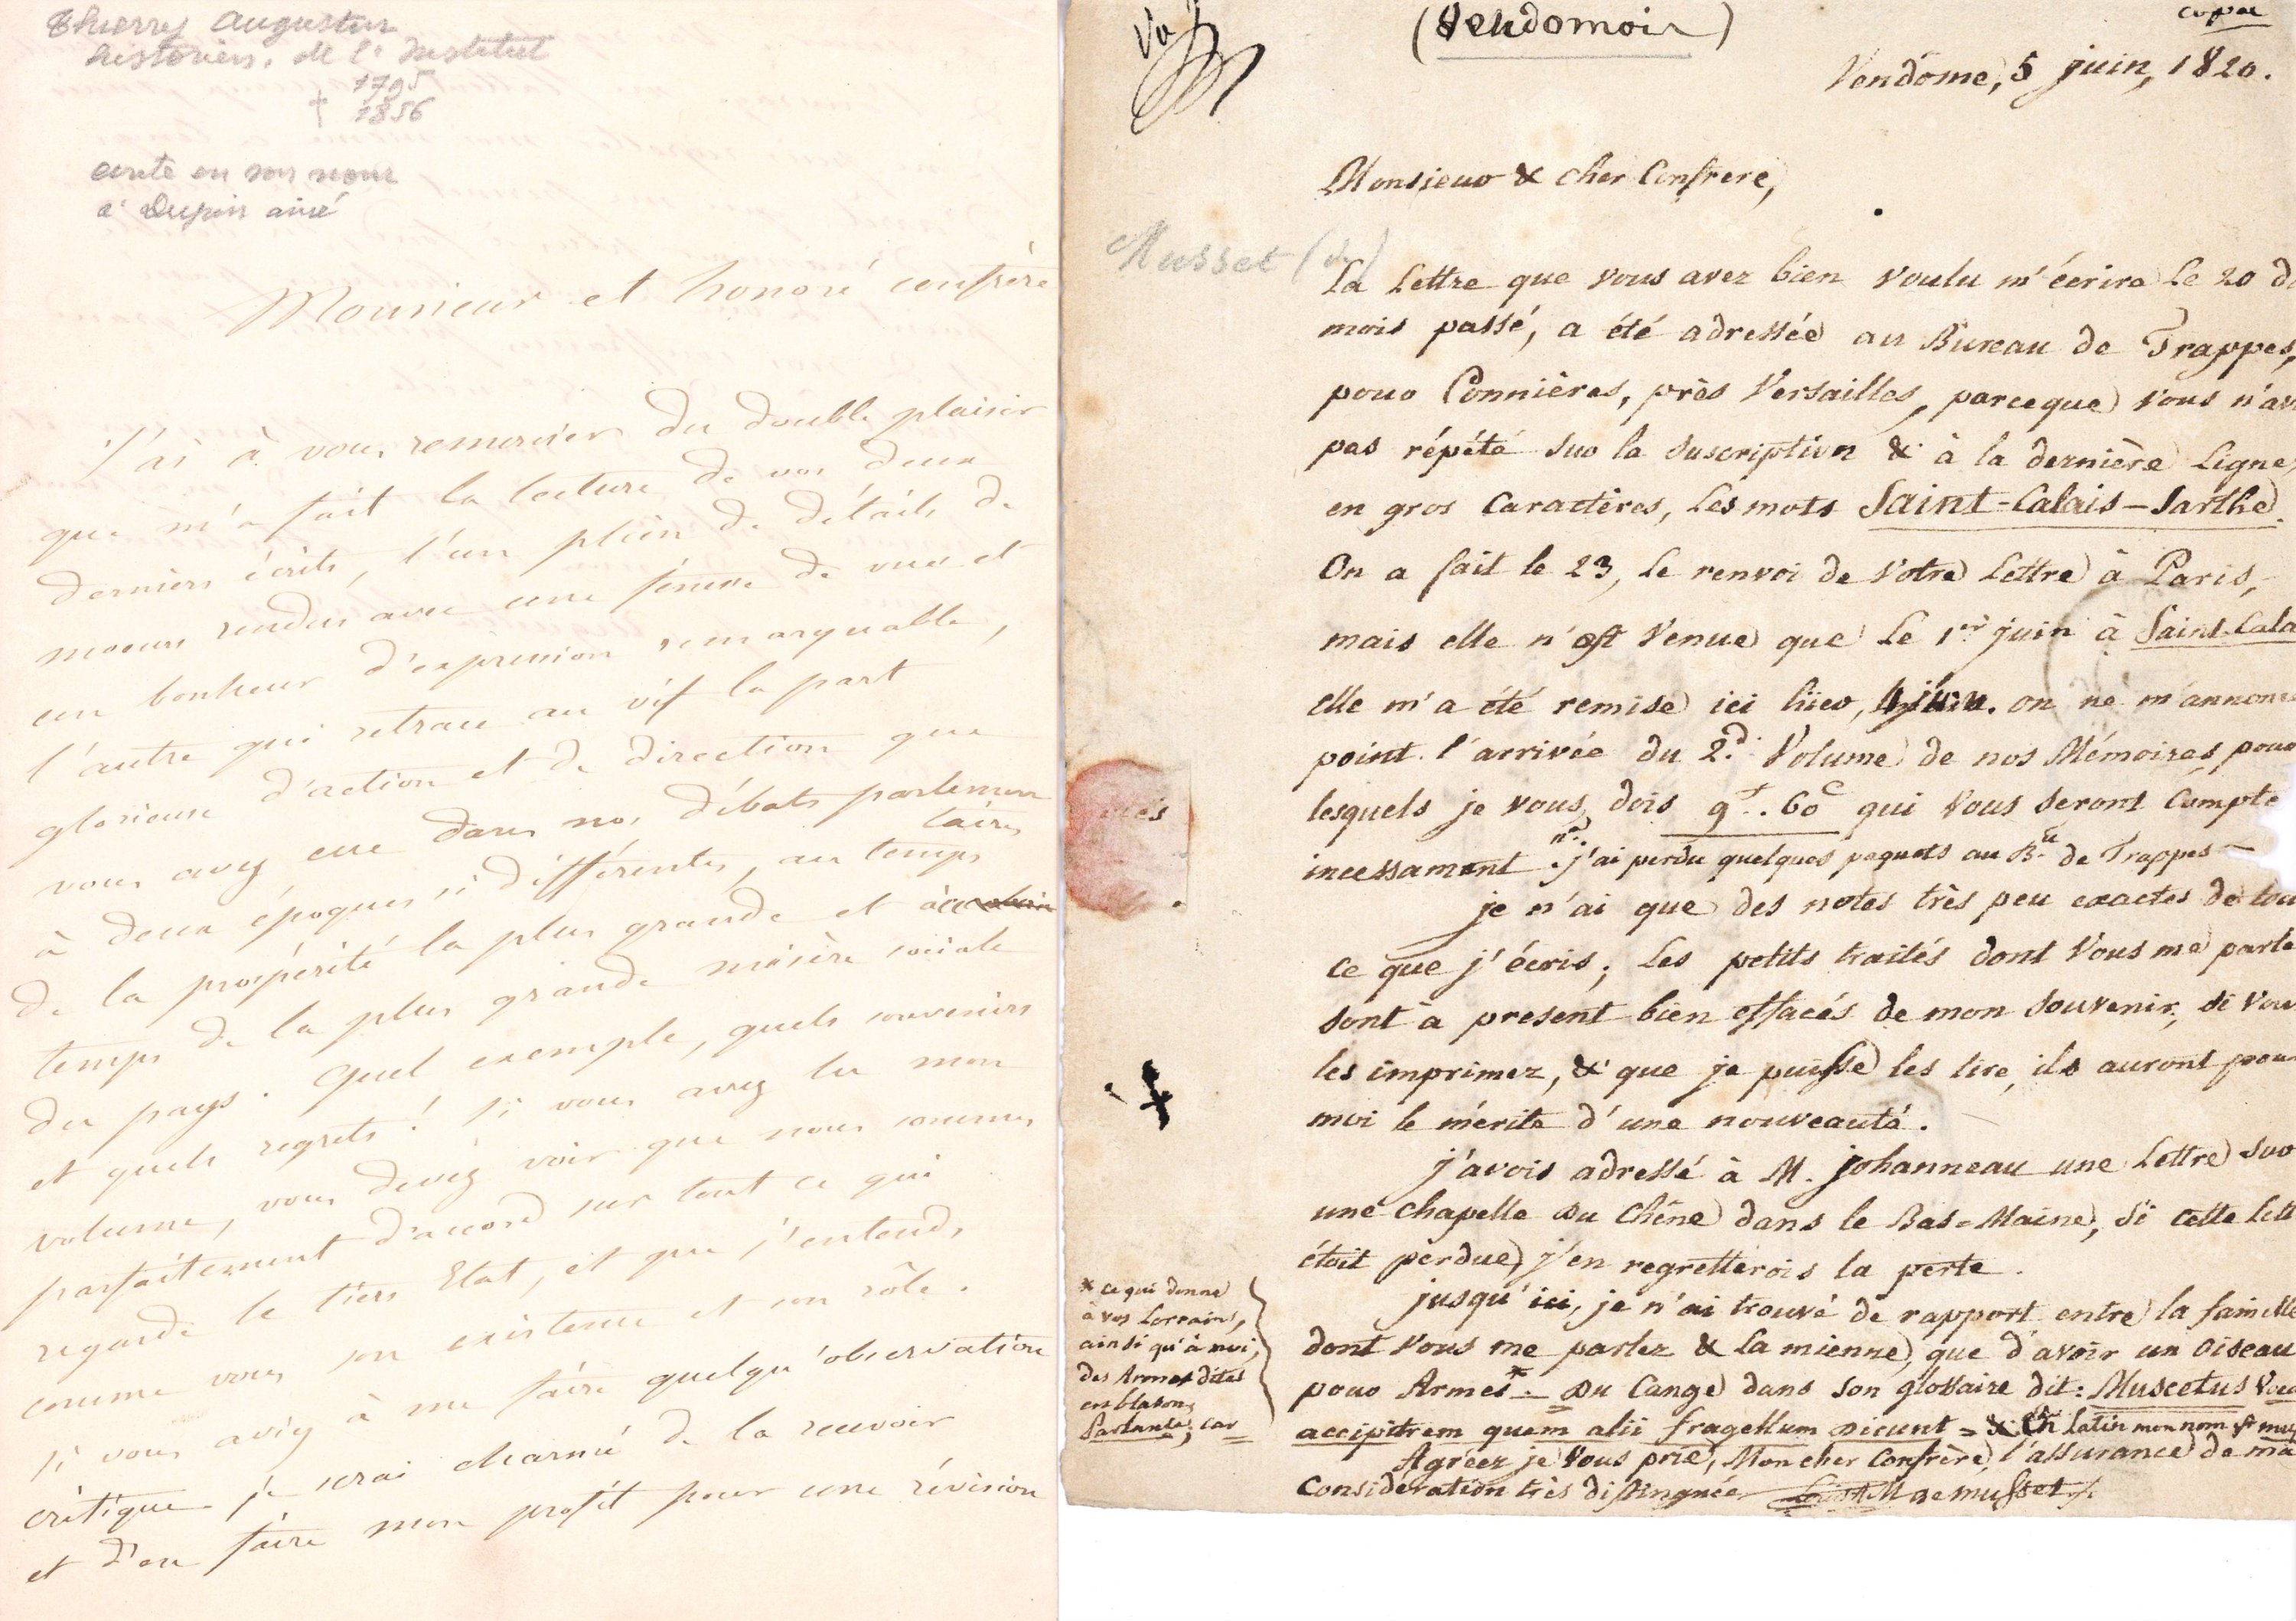 Thierry Augustin
historien, de l'Institut
1795
† 1856
écrite en son nom
à Dupin ainé
Monsieur et honoré confrère
J'ai à vous remercier du double plaisir
que m'a fait la lecture de vos deux
derniers écrits, l'un plein de détails de
moeurs rendus avec une finesse de vues et
un bonheur d'expression remarquable,
l'autre qui retrace au vif la part
glorieuse d'action et de direction que
vous avez eue dans nos débats parlemen
taires
à deux époques si différentes, au temps
de la prospérité la plus grande et au
temps de la plus grande misère sociale
du pays. Quel exemple, quels souvenirs
et quels regrets! Si vous avez lu mon
volume, vous devez voir que nous sommes
parfaitement d'accord sur tout ce qui
regarde le tiers Etat, et que j'entends
comme vous son existence et son rôle.
Si vous aviez à me faire quelqu'observation
critique je serai charmé de la recevoir
et d'en faire mon profit pour une révision
(Vendomois)
copie
Vendôme, 5 juin, 1820.
Monsieur & cher Confrere,
Musset (de)
La Lettre que vous avez bien voulu m'écrire le 20 du
mois passé, a été adressée au Bureau de Trappes,
pour Connières, près Versailles, parceque vous n'av
pas répété sur la suscription & à la dernière ligne,
en gros caractères, les mots Saint-Calais-Sarthe.
On a fait le 23, le renvoi de votre Lettre à Paris,
mais elle n'est venue que le 1er juin à Saint-Cala
elle m'a été remise ici hier, 4 juin. on ne m'annonce
point l'arrivée du 2d. Volume de nos Mémoires, pour
lesquels je vous dois 9f. 60c qui vous seront compte
incessament. j'ai perdu quelques paquets au B.au de Trappes —
je n'ai que des notes très peu exactes de tou
ce que j'écris; les petits traités dont vous me parle
sont à present bien effacés de mon souvenir, si vou
les imprimez, & que je puisse les lire, ils auront pour
moi le mérite d'une nouveauté.
j'avois adressé à M. Johanneau une Lettre sur
une chapelle du Chêne dans le Bas-Maine, si cette Lett
étoit perdue, j'en regretterois la perte.
jusqu'ici, je n'ai trouvé de rapport entre la famille
dont vous me parlez & la mienne, que d'avoir un oiseau
pour Armes*. Du Cange dans son glossaire dit: Muscetus
accipitrem quem alii fragellum dicunt = & En latin mon nom est mus
Agréez je vous prie, Mon cher Confrère, l'assurance de ma
Considération très distinguée. Louis M de musset
* ce qui donne
à vos Lorrains,
ainsi qu'à moi,
des Armes dites
en blason,
Parlantes; car